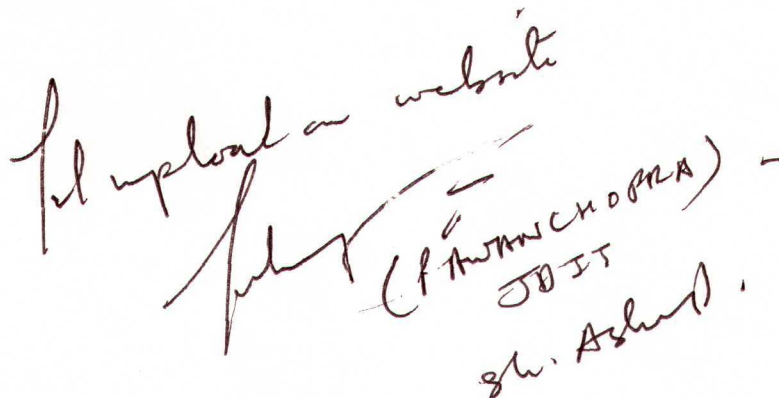 Pl upload on website
(PAWAN CHOPRA)
JDIT
Sh. Ashwd.